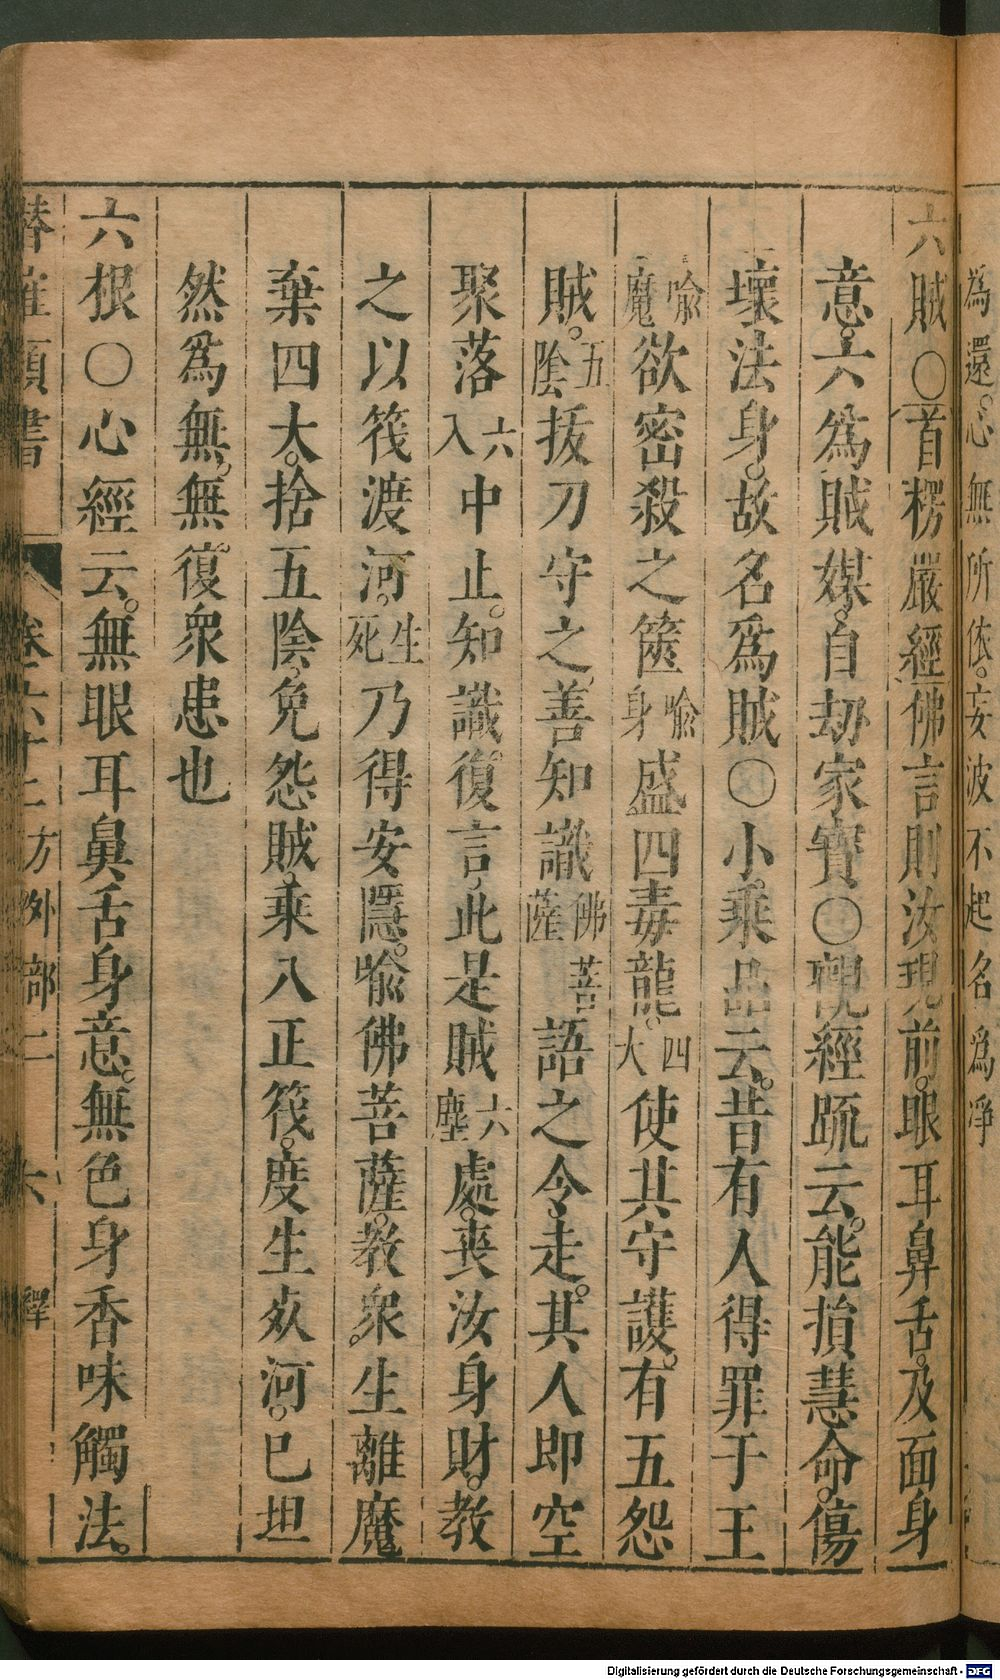 為還。心無所依。妄波不起名為淨
六賊〇首楞嚴經佛言則汝現前。眼耳鼻舌。及面身
意。六爲賊媒。自劫家寶〇觀經疏云。能損慧命。傷
壞法身。故名爲賊〇小乘品云。昔有人得罪于王
喻魔欲密殺之篋喻身盛四毒龍。四大使其守護。有五怨
賊。五陰拔刀守之。善知識佛菩薩語之令走。其人即空
聚落六入中止。知識。復言。此是賊六塵處。喪汝身財。教
之以筏渡河。生死乃得安隱。喻佛菩薩。教衆。生離魔
棄四大。捨五陰。免怨賊。乘八正筏。度生死河。已坦
然爲無。無復。衆患也
六根〇心經云。無眼耳鼻舌身意。無色身香味觸法。
潛確類書
卷六十二方外部二 六 釋
Digitalisierung gefördert durch die Deutsche Forschungsgemeinschaft - DFG